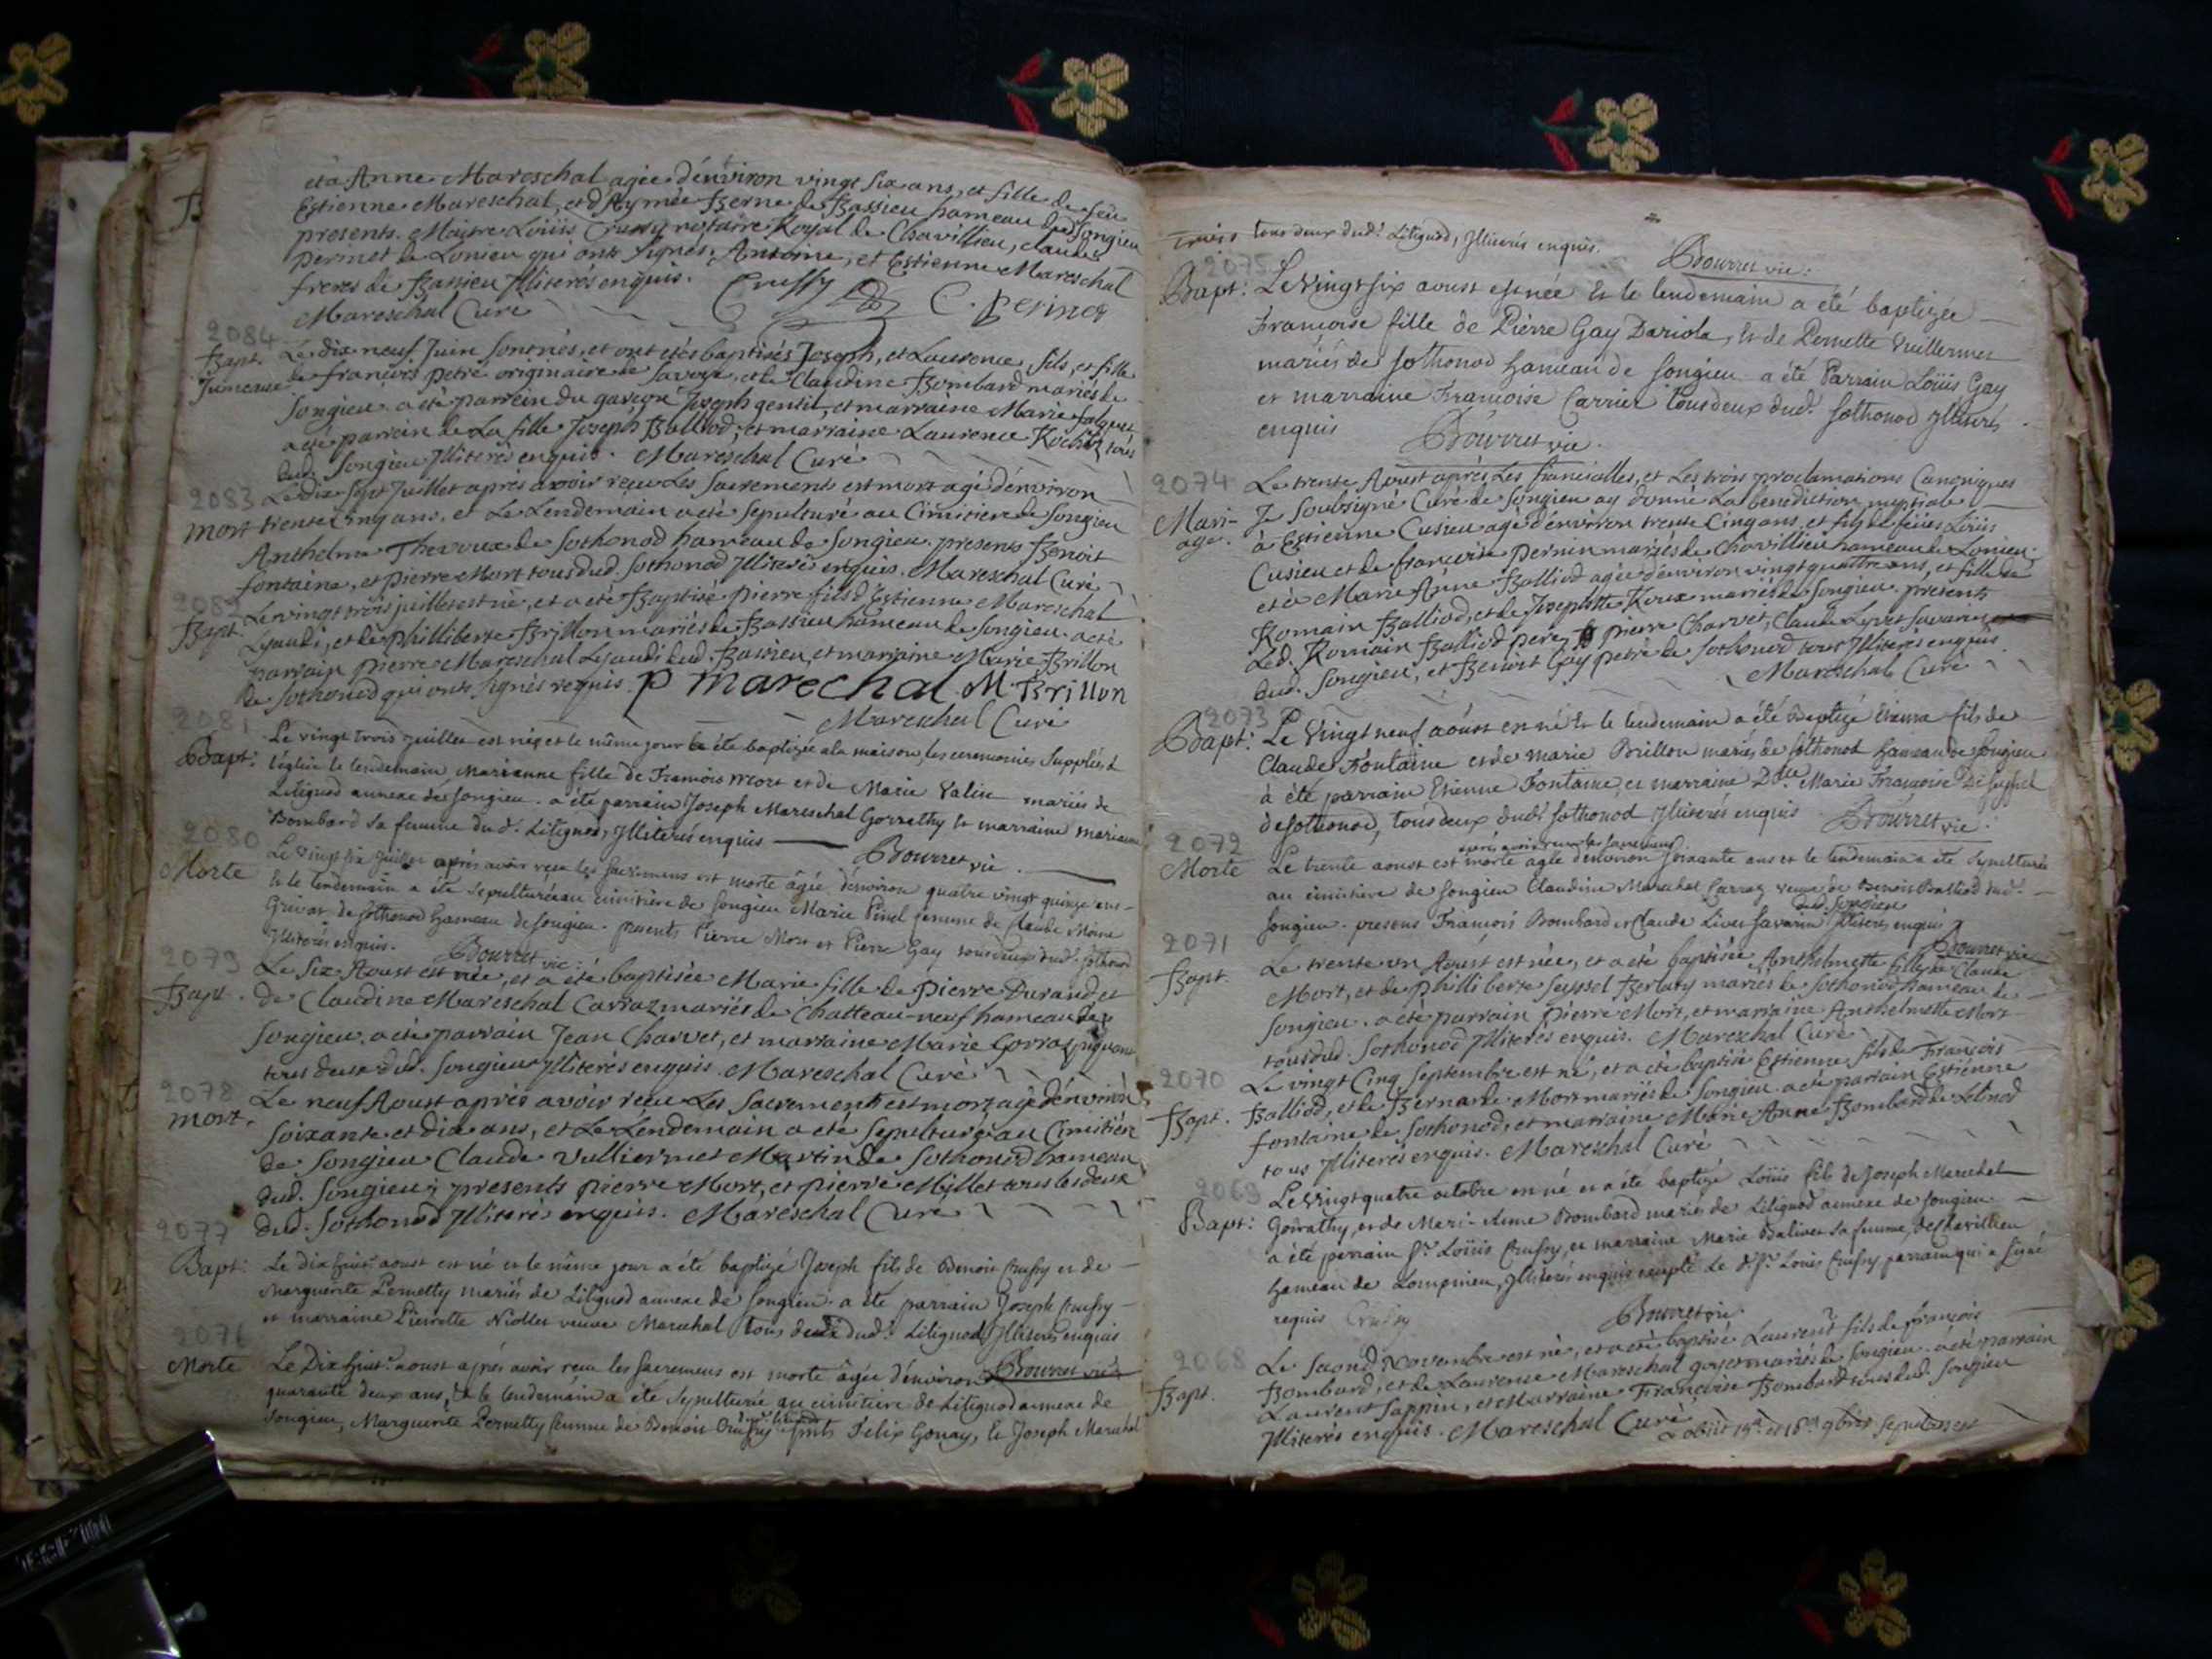 et à Anne Mareschal agée d'énviron vingt six ans, et fille de feu
Estienne Mareschal, et d'Aymée Berne de Bassieu hameau dud Songieu
presents. Maitre Loüis Crussy notaire Royal de Chavillieu, claude
permet de Lonieu qui onts signés. Antoine, et Estienne Mareschal
freres de Bassieu Jlliterés enquis. Crussy C. perinet
Mareschal Curé
2084
Bapt.
Jumeaux
Le dix neuf Juin sont nés, et ont étés baptisés Joseph, et Laurence, fils, et fille
de françois petré originaire de Savoye, et de Claudine Bombard mariés de
Songieu. a eté parrein du garçon Joseph gentil, et marraine Marie
a eté parrein de La fille Joseph Balliod, et marraine Laurence Rochet tous
dud. Songieu Jlliterés enquis. Mareschal Curé
2083
mort
Le dix sept Juillet aprés avoir reçu Les sacrements est mort agé d'énviron
trente Cinq ans, et Le Lendemain a eté sepulturé au Cimitiere de Songieu
Anthelme Thevoux de Sothonod hameau de Songieu. presents Benoit
fontaine, et pierre Mort tous dud. Sothonod Jlliterés enquis. Mareschal Curé
Bapt.
Le vingt trois juillet est né, et a eté Baptisé pierre fils d'Estienne Mareschal
Lyaudi, et de philliberte Brillon mariés de Bassieu hameau de Songieu. a eté
parrain pierre Mareschal Lyaudi dud. Bassieu, et marraine Marie Brillon
de Sothonod qui onts signés requis. P marechal M Brillon
Mareschal Curé
2081
Bapt:
Le vingt trois juillet est née et le même jour a été baptizée a la maison, les ceremonies supplées à
l'église le lendemain, Marianne fille de François Mort et de Marie Valin mariés de
Litignod annexe de Songieu. a été parrain Joseph Mareschal Gorrathy et marraine mariane
Bombard sa femme dud. Litignod, Jlliterés enquis
Bourret vic.
2080
Morte
Le vingt six juillet aprés avoir reçu les sacremens est morte âgée d'énviron quatre vingt quinze ans
et le lendemain a été sepulturée au cimitière de Songieu Marie Pinel femme de Claude Moine
Grivat de Sothonod hameau de Songieu. presents Pierre Mort et Pierre Gay tous deux dud. Sothonod
Jlliterés enquis. Bourret vic:
2079
Bapt.
Le six Aoust est née, et a eté baptisée Marie fille de pierre Durand, et
de Claudine Mareschal Carraz mariés de Chatteau-neuf hameau de
Songieu. a eté parrain Jean Charvet, et marraine Marie Gorraz
tous deux dud. Songieu Jlliterés enquis. Mareschal Curé
2078
mort.
Le neuf Aoust aprés avoir reçu Les sacrements est mort agé d'énviron
soixante et dix ans, et Le Lendemain a eté sepulturé au Cimitiére
de Songieu Claude Vulliermet Martin de Sothonod hameau
dud. Songieu; presents pierre Mort, et pierre Millet tous les deux
dud. Sothonod Jlliterés enquis. Mareschal Curé
2077
Bapt:
Le dix huit aoust est né et le même jour a été baptizé Joseph fils de Benoit Crussy et de
Marguerite Pernetty mariés de Litignod annexe de Songieu. a été parrain Joseph Crussy
et marraine Pierrette Niollet veuve Marechal tous deux dud. Litignod Jlliterés enquis
Bourret vic
2076
Morte
Le Dix huit aoust aprés avoir reçu les sacremens est morte âgée d'énviron
quarante deux ans, et le lendemain a été sepulturée au cimitiere de Litignod annexe de
Songieu, Marguerite Pernetty femme de Benoit Crussy Felix Gonay, et Joseph Marechal
tous deux dud. Litignod, Jlliterés enquis. Bourret vic:
2075
Bapt:
Le Vingt six aoust est née et le lendemain a été baptizée
Francoise fille de Pierre Gay Dariola, et de Pernette Vuillermet
mariés de Sothonod hameau de Songieu a été Parrain Loüis Gay
et marraine Francoise Carrier tous deux dud. Sothonod Jlliterés
enquis Bourret vic.
2074
Mari-
age.
Le trente Aoust aprés Les fiançialles, et Les trois proclamations Canoniques
Je soubsigné Curé de Songieu ay donné La benediction nuptiale
à Estienne Cusieu agé d'énviron trente Cinq ans, et fils de feües Loüis
Cusieu et de françoise Pernin mariés de Chavillieu hameau de Lonieu
et à Marie Anne Balliod agée d'énviron vingt quattre ans, et fille de
Romain Balliod, et de Josephtte Roux mariés de Songieu. presents
Led. Romain Balliod pere, pierre Charvet, Claude Lyvet Savarin
dud. Songieu, et Benoit Gay petré de Sothonod tous Jlliterés enquis
Mareschal Curé
2073
Bapt:
Le Vingt neuf aoust est né et le lendemain a été Baptizé Etienne fils de
Claude Fontaine et de marie Brillon mariés de Sothonod hameau de Songieu
à été parrain Etienne Fontaine, et marraine Dlle. Marie Françoise De Seyssel
de Sothonod, tous deux dud. Sothonod Jlliterés enquis Bourret vic.
2072
Morte
après avoir reçu les sacremens
Le trente aoust est morte agée d'énviron soixante ans et le lendemain a été sepulturée
au cimitière de Songieu Claudine Marechal Carraz veuve de Benoit Balliod dud.
dud. Songieu
Songieu. presens François Bombard et Claude Livet Savarin Jlliterés enquis
Bourret vic
2071
Bapt.
Le trente un Aoust est née, et a eté baptisée Anthelmette fille de Claude
Mort, et de philliberte Seyssel Berlaty mariés de Sothonod hameau de
Songieu. a eté parrain pierre Mort, et marraine Anthelmette Mort
tous dud. Sothonod Jlliterés enquis. Mareschal Curé
2070
Bapt.
Le vingt Cinq Septembre est né, et a eté baptisé Estienne fils de François
Balliod, et de Bernarde Mort mariés de Songieu. a eté parrain Estienne
fontaine de Sothonod, et marraine Marie Anne Bombard de Litinod
tous Jlliterés enquis. Mareschal Curé
2069
Bapt:
Le Vingt quatre octobre est né et a été baptizé Loüis fils de Joseph Marechal
Gorrathy, et de Mari-Anne Bombard mariés de Litignod annexe de Songieu
a été parrain Sr. Loüis Crussy, et marraine Marie Balivet sa femme, de Chavillieu
hameau de Lompnieu, Jlliterés enquis excepté Le d. Sr. Louis Crussy parrain qui a signé
requis Crussy
Bourret vic.
2068
Bapt.
Le second Novembre est né, et a eté baptisé Laurent fils de françois
Bombard, et de Laurence Mareschal goyet mariés de Songieu. a eté parrain
Laurent Sappin, et Marraine Françoise Bombard tous dud. Songieu
Jlliterés enquis. Mareschal Curé